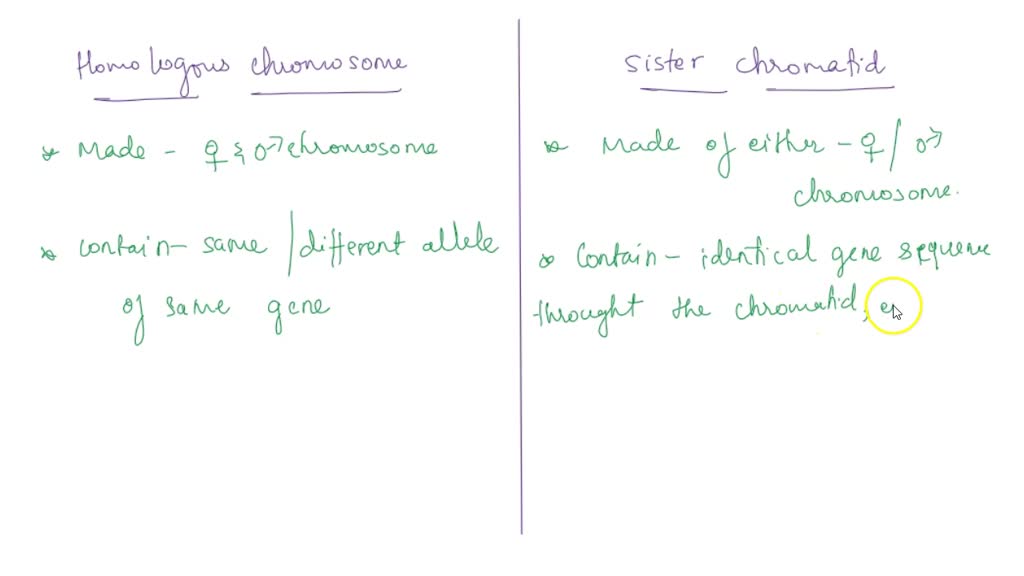 Homologous chromosome
* Made - ♀ & ♂ chromosome
* contain - same / different allele
of same gene
Sister chromatid
* Made of either - ♀ / ♂
chromosome.
* Contain - identical gene sequence
throught the chromatid, e